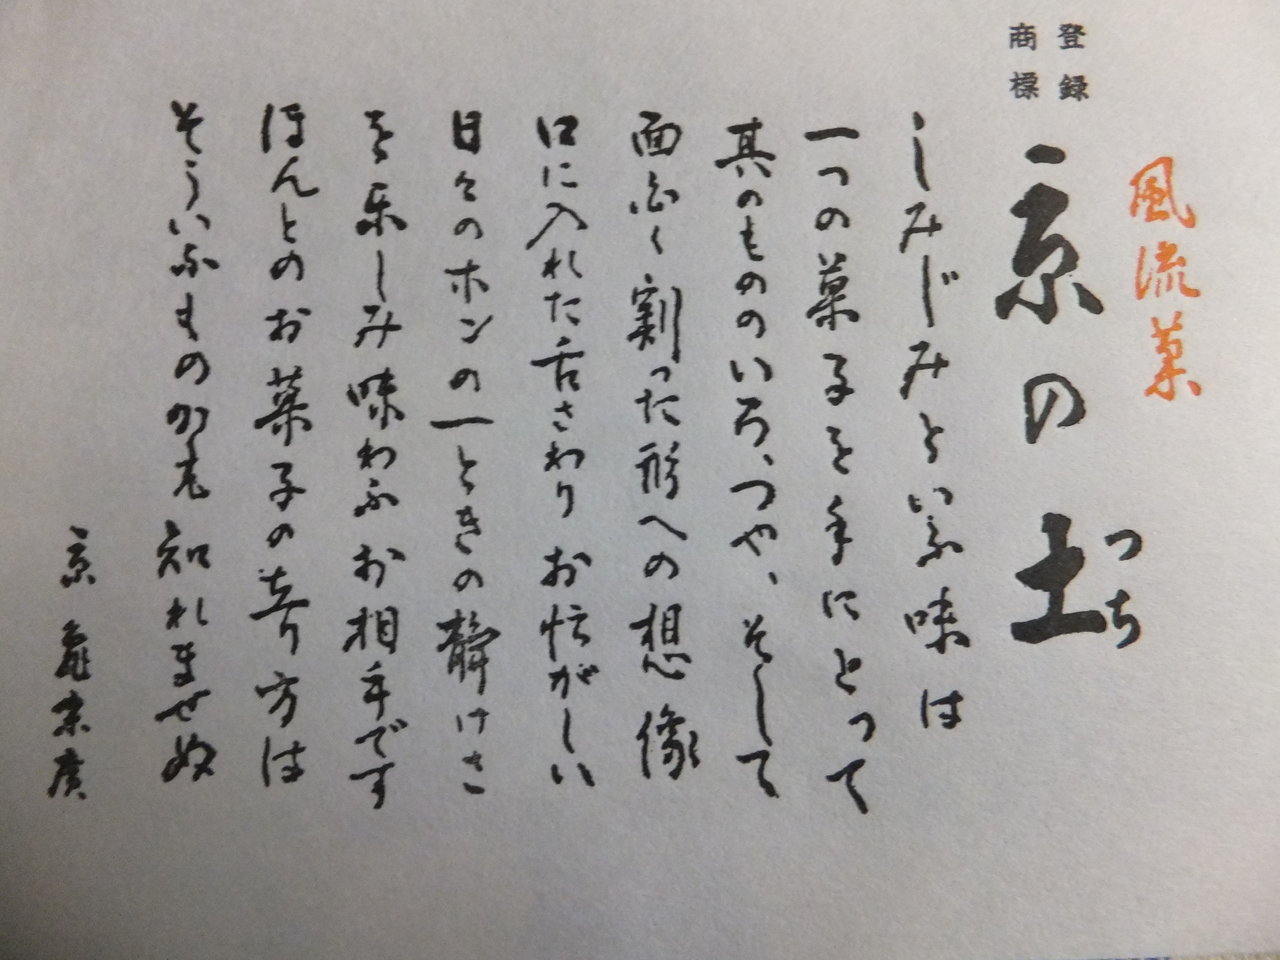 風流菓
登録
商標
京の土
つち
しみじみといふ味は
一つの菓子を手にとって
其のもののいろ、つや、そして
面白く割った形への想像
口に入れた舌さわりお忙がしい
日々のホンの一ときの静けさ
を楽しみ味わふお相手です
ほんとのお菓子の寿り方は
そういふものかも知れませぬ
京 亀末廣